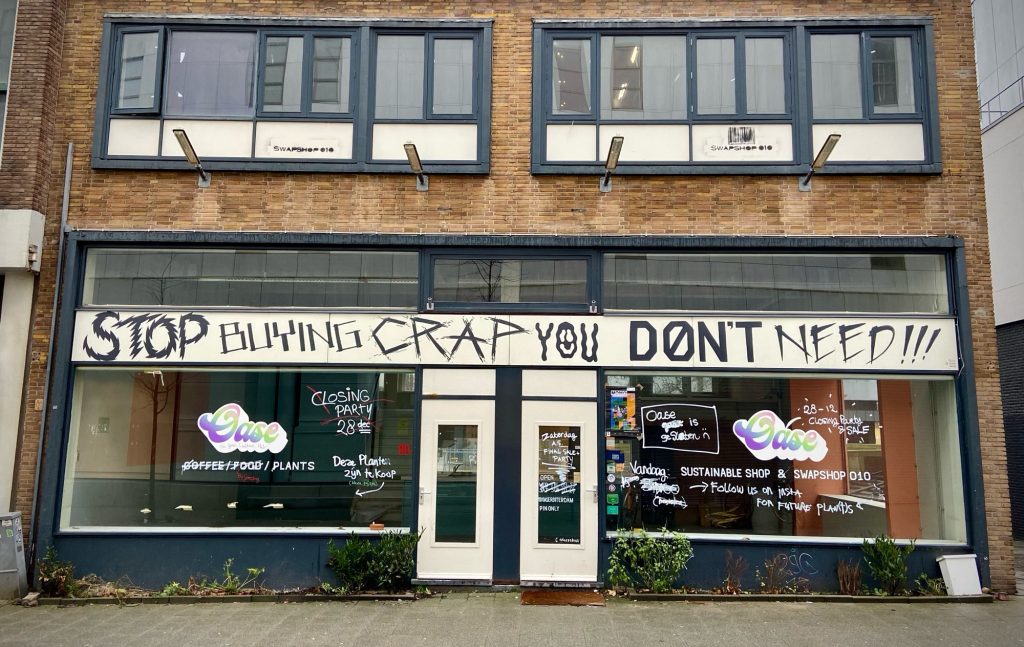 SWAPSHOP 010
SWAPSHOP 010
STOP BUYING CRAP YOU DON'T NEED!!!
Oase
COFFEE / FOOD / PLANTS
CLOSING
PARTY
28 dec
Deze Planten
zijn te koop
Zaterdag
FINAL SALE +
PARTY
OPEN
PIN ONLY
Oase
is
gesloten
Vandaag:
Oase
28-12
CLOSING Party
& SALE
SUSTAINABLE SHOP & SWAPSHOP 010
→ FOLLOW US on insta
FOR FUTURE PLAN(T)S